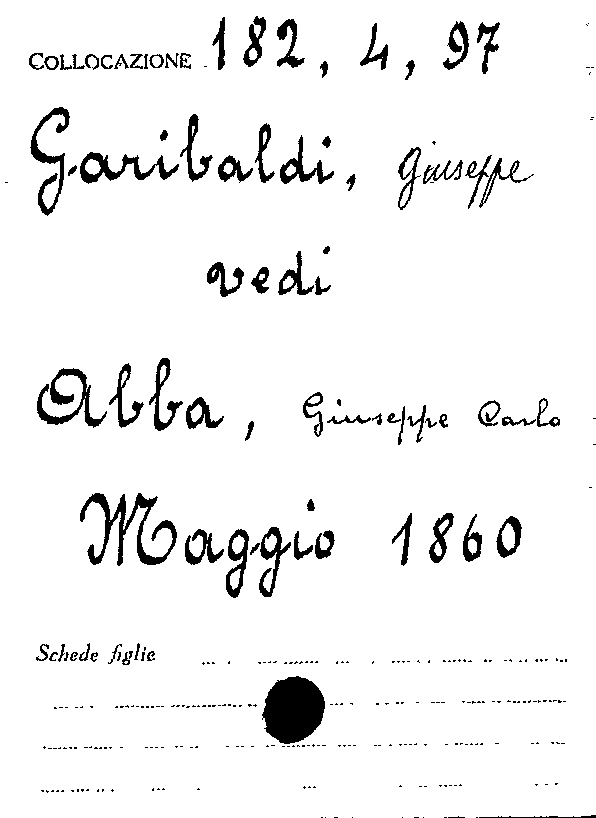 COLLOCAZIONE 182, 4, 97
Garibaldi, Giuseppe
vedi
Abba, Giuseppe Carlo
Maggio 1860
Schede figlie